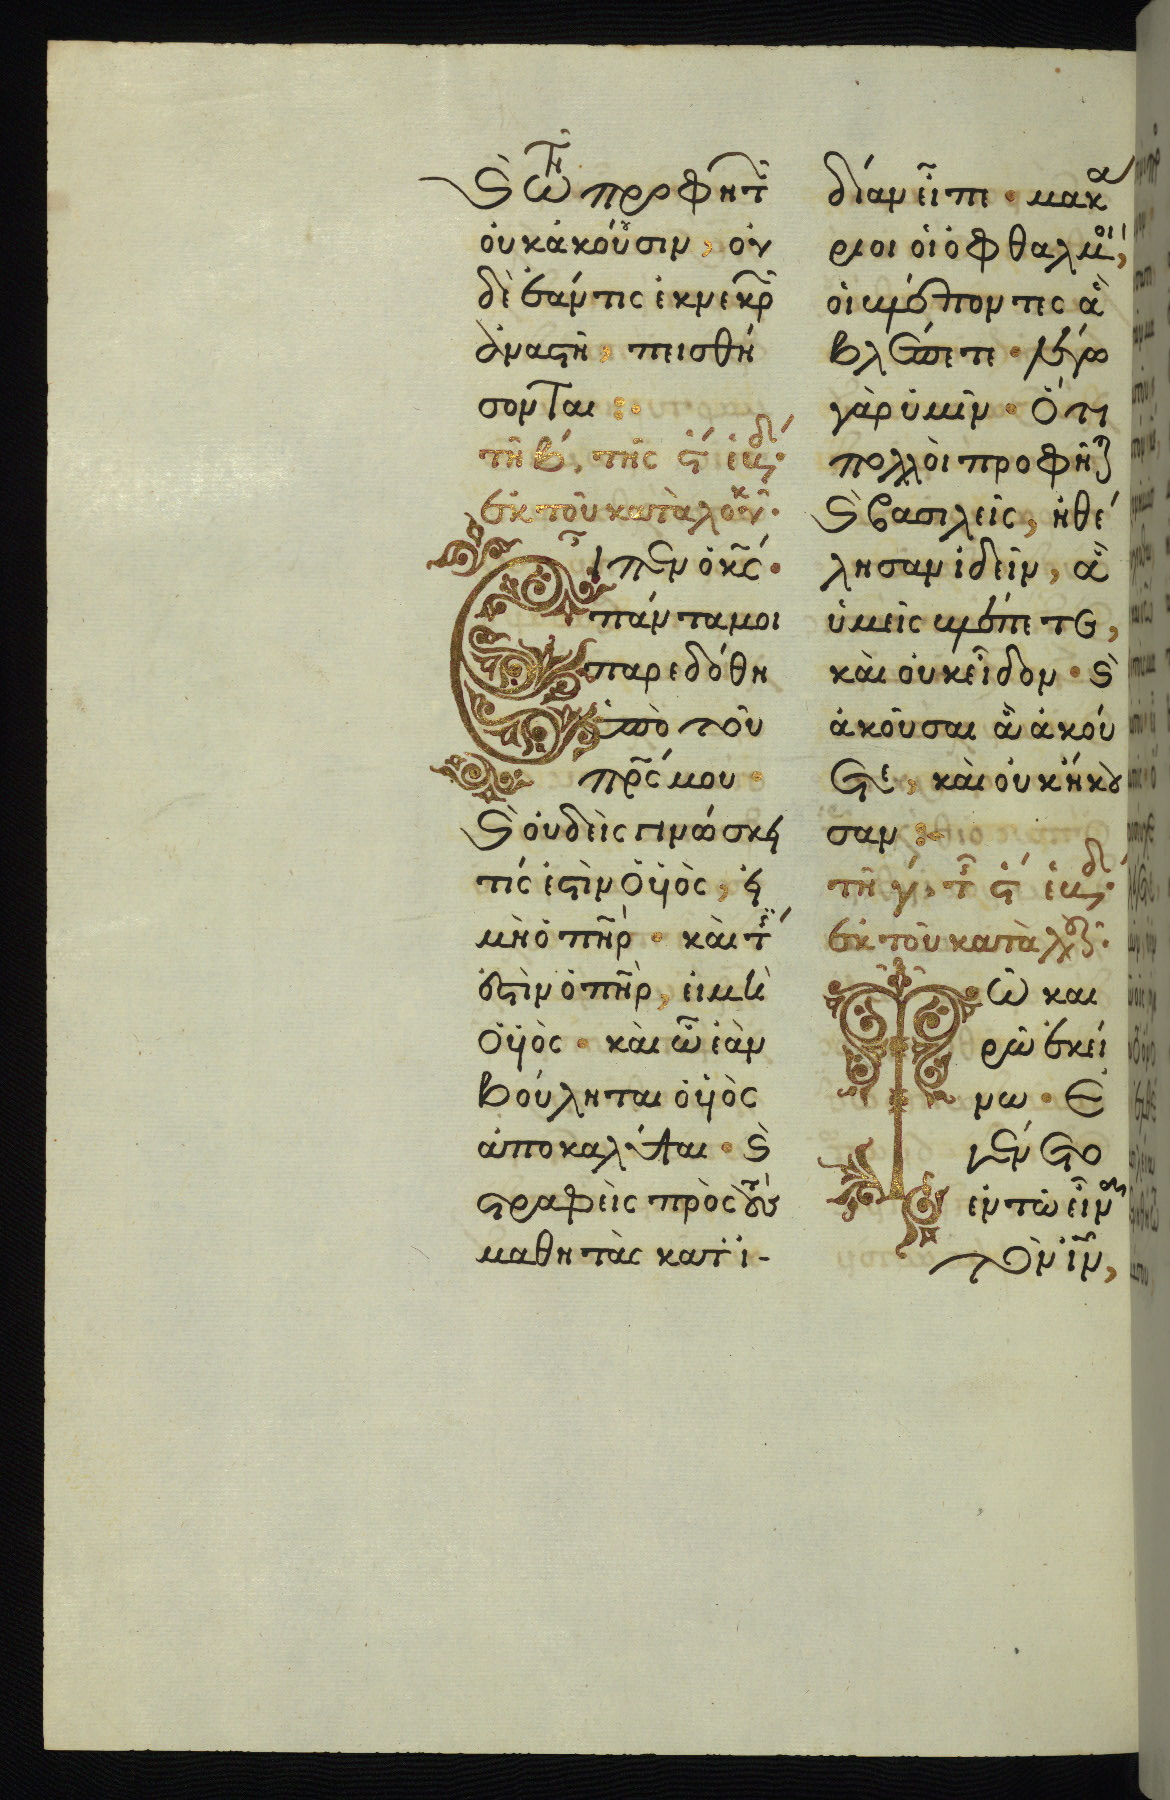 καὶ τῶν προφητῶν
οὐκ ἀκούουσιν, οὐ
δὲ ἐάν τις ἐκ νεκρῶν
ἀναστῆ, πεισθή
σονται :·
τῆ β΄, τῆς ϛ΄ ἑβδ΄·
ἐκ τοῦ κατὰ λουκᾶν·
Εἶπεν ὁ κ̅ς·
πάντα μοι
παρεδόθη
ὑπὸ τοῦ
π̅ρ̅ς μου·
καὶ οὐδεὶς γινώσκει
τίς ἐστὶν ὁ υἱὸς, εἰ
μὴ ὁ π̅η̅ρ· καὶ τίς
ἐστὶν ὁ π̅η̅ρ, εἰ μὴ
ὁ υἱὸς· καὶ ὧ ἐὰν
βούληται ὁ υἱὸς
ἀποκαλύψαι· καὶ
στραφεὶς πρὸς τοὺς
μαθητὰς κατ' ἰ-
δίαν εἶπε· μακά
ριοι οἱ ὀφθαλμοὶ,
οἱ βλέποντες ἃ
βλέπετε· λέγω
γὰρ ὑμῖν· ὅτι
πολλοὶ προφῆται
καὶ βασιλεῖς, ἠθέ
λησαν ἰδεῖν, ἃ
ὑμεῖς βλέπετε,
καὶ οὐκ εἶδον· καὶ
ἀκοῦσαι ἃ ἀκού
ετε, καὶ οὐκ ἤκου
σαν :·
τῆ γ΄, τῆς ϛ΄ ἑβδ΄·
ἐκ τοῦ κατὰ λουκᾶν·
Τῶ και
ρῶ ἐκεί
νω· ἐ
γένετο
ἐν τῶ εἶναι
τὸν ἰ̅ν,